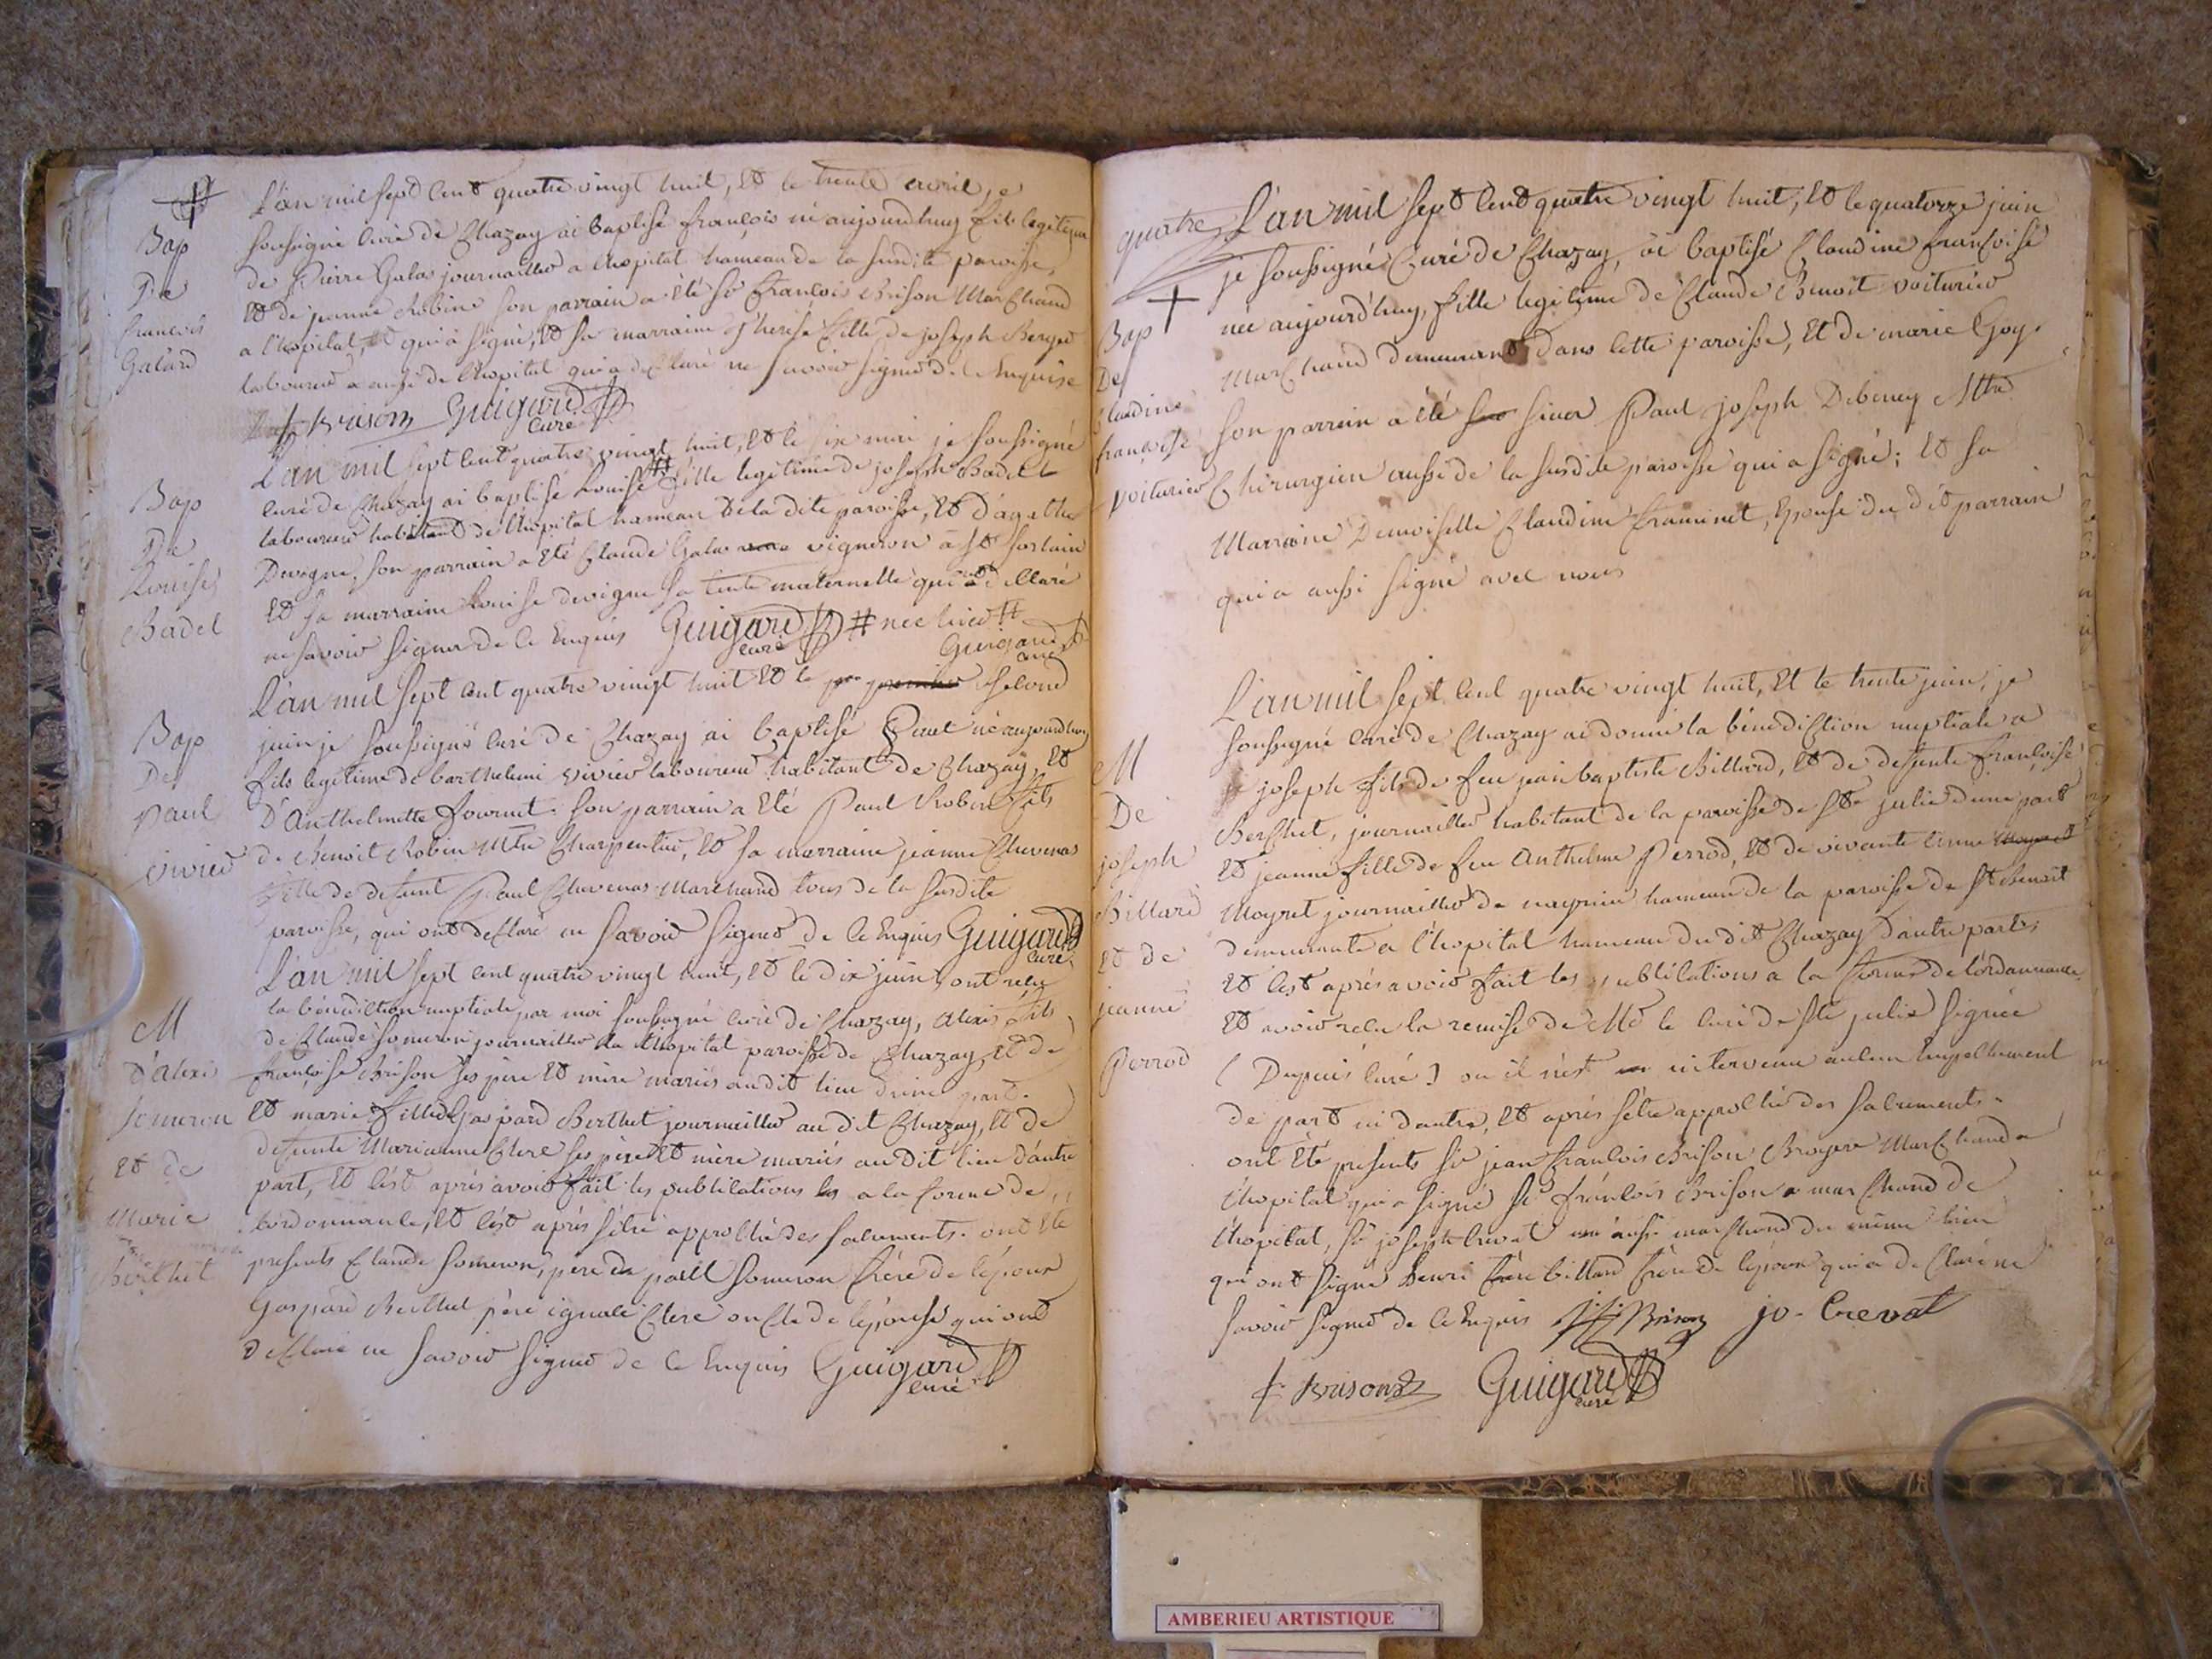 Bap
De
françois
Galard
L'an mil sept cent quatre vingt huit, et le trente avril, e
soussigné curé de Chazay ai baptisé françois né aujourdhuy fils legitime
de Pierre Galas journaillier a l'hopital hameau de la susdite paroisse,
et de jeanne Robin son parrain a été sr françois Brison Marchand
a l'hopital, et qui a signé, et sa marraine Therese fille de joseph Berger
laboureur aussi de l'hopital qui a declaré ne savoir signer de enquise
Brison Guigard
curé
Bap
De
Louise
Badel
L'an mil sept cent quatre vingt huit, et le six mai je soussigné
curé de Chazay ai baptisé Louise # fille legitime de joseph Badel
laboureur habitant de l'hopital hameau de la dite paroisse, et d'agathe
Devigne, son parrain a été Claude Galas vigneron a St Sorlain
et sa marraine Louise devigne sa tente maternelle qui a declaré
ne savoir signer de ce enquis Guigard # nee hier #
curé Guigard
curé
Bap
De
paul
vivier
L'an mil sept cent quatre vingt huit et le premier second
juin je soussigné curé de Chazay ai baptisé Paul né aujourdhuy
fils legitime de barthelemi vivier laboureur habitant de Chazay, et
D'Anthelmette fournet. son parrain a été Paul Robin fils
de Benoit Robin Mtre Charpentier, et sa marraine jeanne Chavenas
fille de defunt Paul Chavenas Marchand tous de la susdite
paroisse, qui ont declaré ne savoir signer de ce enquis Guigard
curé
M
d'Alexi
Someron
et de
Marie
berthet
L'an mil sept cent quatre vingt huit, et le dix juin, ont reçu
la bénédiction nuptiale par moi soussigné curé de Chazay, Alexis fils
de Claude Someron journaillier de l'hopital paroisse de Chazay, et de
françoise Brison ses père et mère mariés audit lieu d'une part.
et marie fille de Gaspard Berthet journaillier au dit Chazay, et de
defunte Marianne Clerc ses père et mère mariés au dit lieu d'autre
part, et c'est après avoir fait les publications a la forme de
l'ordonnance, et c'est après s'être approchés des sacrements. ont été
presents Claude Someron, père someron frère de l'époux
Gaspard Berthet père ignace Clerc oncle de l'épouse qui ont
declaré ne savoir signer de ce enquis Guigard
curé
quatre
Bap
De
Claudine
françoise
voiturier
L'an mil sept cent quatre vingt huit, et le quatorze juin
je soussigné Curé de Chazay, ai baptisé Claudine françoise
née aujourd'huy, fille legitime de Claude Benoit voiturier
Marchand demeurant dans cette paroisse, et de marie Goy.
son parrain a été sieur Paul joseph Debeney Mtre
Chirurgien aussi de la susdite paroisse qui a signé; et sa
Marraine Demoiselle Claudine framinet, épouse du dit parrain
qui a aussi signé avec nous
M
De
joseph
Billard
et de
jeanne
Perrod
L'an mil sept cent quatre vingt huit, et le trente juin, je
soussigné curé de Chazay ai donné la bénédiction nuptiale a
joseph fils de feu jean baptiste Billard, et de defunte françoise
Berchet, journaillier habitant de la paroisse de Ste julie d'une part
et jeanne fille de feu Anthelme Perrod, et de vivante anne
Moyret journaillier de hameau de la paroisse de St Benoit
demeurante a l'hopital hameau du dit Chazay d'autre part.
et c'est après avoir fait les publications a la forme de l'ordonnance
et avoir reçu la remise de Mr le curé de Ste julie signée
( Dupuis curé ) ou il n'est intervenu aucun empechement
de part ni d'autre, et après s'être approchés des sacrements.
ont été presents sr jean françois Brison Broyer Marchand a
l'hopital qui a signé sr françois Brison marchand de
l'hopital, sr joseph Crevat aussi marchand du même lieu
qui ont signé henri billard frère de l'époux qui a declaré ne
savoir signer de ce enquis j f Brison jo - Crevat
f. Brison Guigard
curé
AMBERIEU ARTISTIQUE